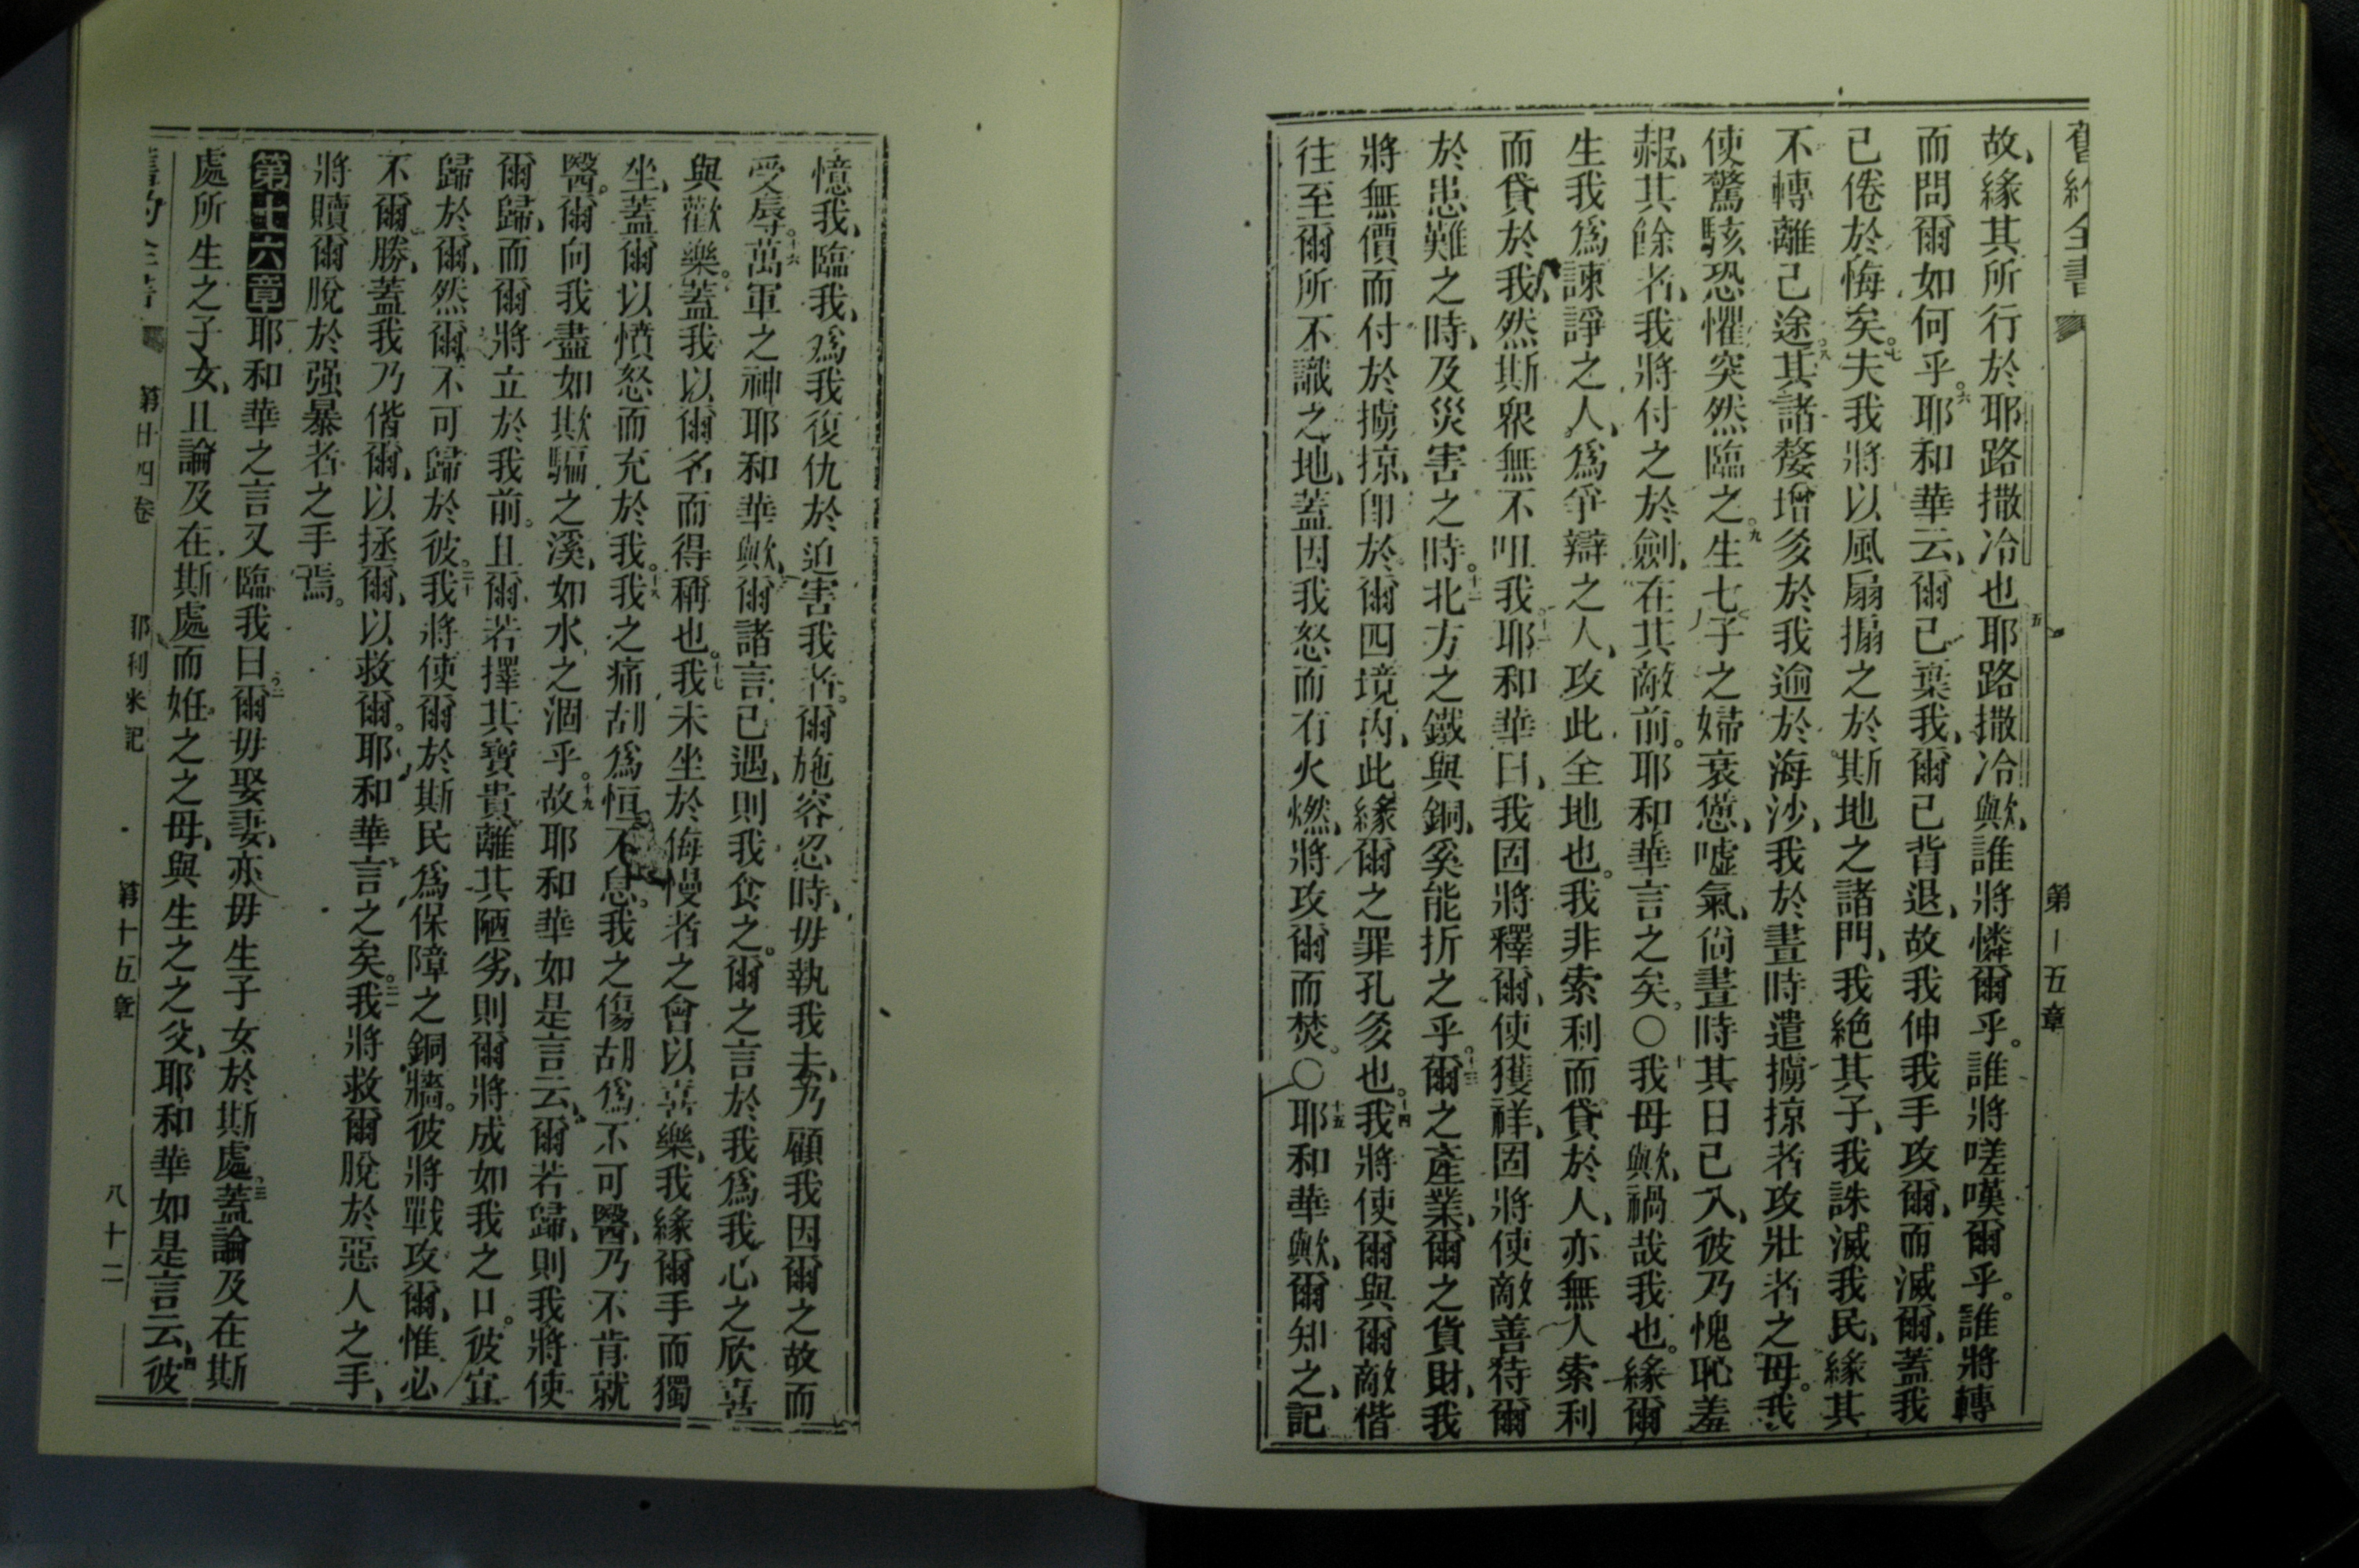 舊約全書
第十五章
故、緣其所行於耶路撒冷也五耶路撒冷歟、誰將憐爾乎。誰將嗟嘆爾乎。誰將轉
而問爾如何乎。六耶和華云、爾已棄我、爾已背退、故我伸我手攻爾、而滅爾、蓋我
已倦於悔矣。七夫我將以風扇搧之於斯地之諸門、我絕其子、我誅滅我民、緣其
不轉離己途。八其諸嫠增多於我逾於海沙、我於晝時遣擄掠者攻壯者之母。我
使驚駭恐懼突然臨之。九生七子之婦衰憊、噓氣、尙晝時其日已入、彼乃愧恥羞
赧、其餘者、我將付之於劍、在其敵前。耶和華言之矣。〇十我母歟、禍哉我也。緣爾
生我爲諫諍之人、爲爭辯之人、攻此全地也。我非索利而貸於人、亦無人索利
而貸於我、然斯眾無不咀我。十一耶和華曰、我固將釋爾、使獲祥、固將使敵善待爾
於患難之時、及災害之時。十二北方之鐵與銅、奚能折之乎。十三爾之產業、爾之貨財、我
將無價而付於擄掠、卽於爾四境內、此緣爾之罪孔多也。十四我將使爾與爾敵偕
往至爾所不識之地、蓋因我怒而有火燃、將攻爾而焚。〇十五耶和華歟、爾知之、記
憶我、臨我、爲我復仇於迫害我者。爾施容忍時、毋執我去、乃顧我因爾之故而
受辱。十六萬軍之神耶和華歟、爾諸言已遇、則我食之。爾之言於我爲我心之欣喜
與歡樂。蓋我以爾名而得稱也。十七我未坐於侮慢者之會以喜樂、我緣爾手而獨
坐、蓋爾以憤怒而充於我。十八我之痛胡爲恒不息。我之傷胡爲不可醫、乃不肯就
醫。爾向我盡如欺騙之溪、如水之涸乎。十九故耶和華如是言云、爾若歸、則我將使
爾歸、而爾將立於我前。且爾若擇其寶貴離其陋劣、則爾將成如我之口。彼宜
歸於爾、然爾不可歸於彼。二十我將使爾於斯民爲保障之銅牆。彼將戰攻爾、惟必
不爾勝、蓋我乃偕爾、以拯爾、以救爾。耶和華言之矣。二一我將救爾脫於惡人之手、
將贖爾脫於强暴者之手焉。
第十六章耶和華之言又臨我曰二爾毋娶妻、亦毋生子女於斯處。三蓋論及在斯
處所生之子女、且論及在斯處而姙之之母、與生之之父、耶和華如是言云、四彼
第廿四卷 耶利米記 第十五章 八十二